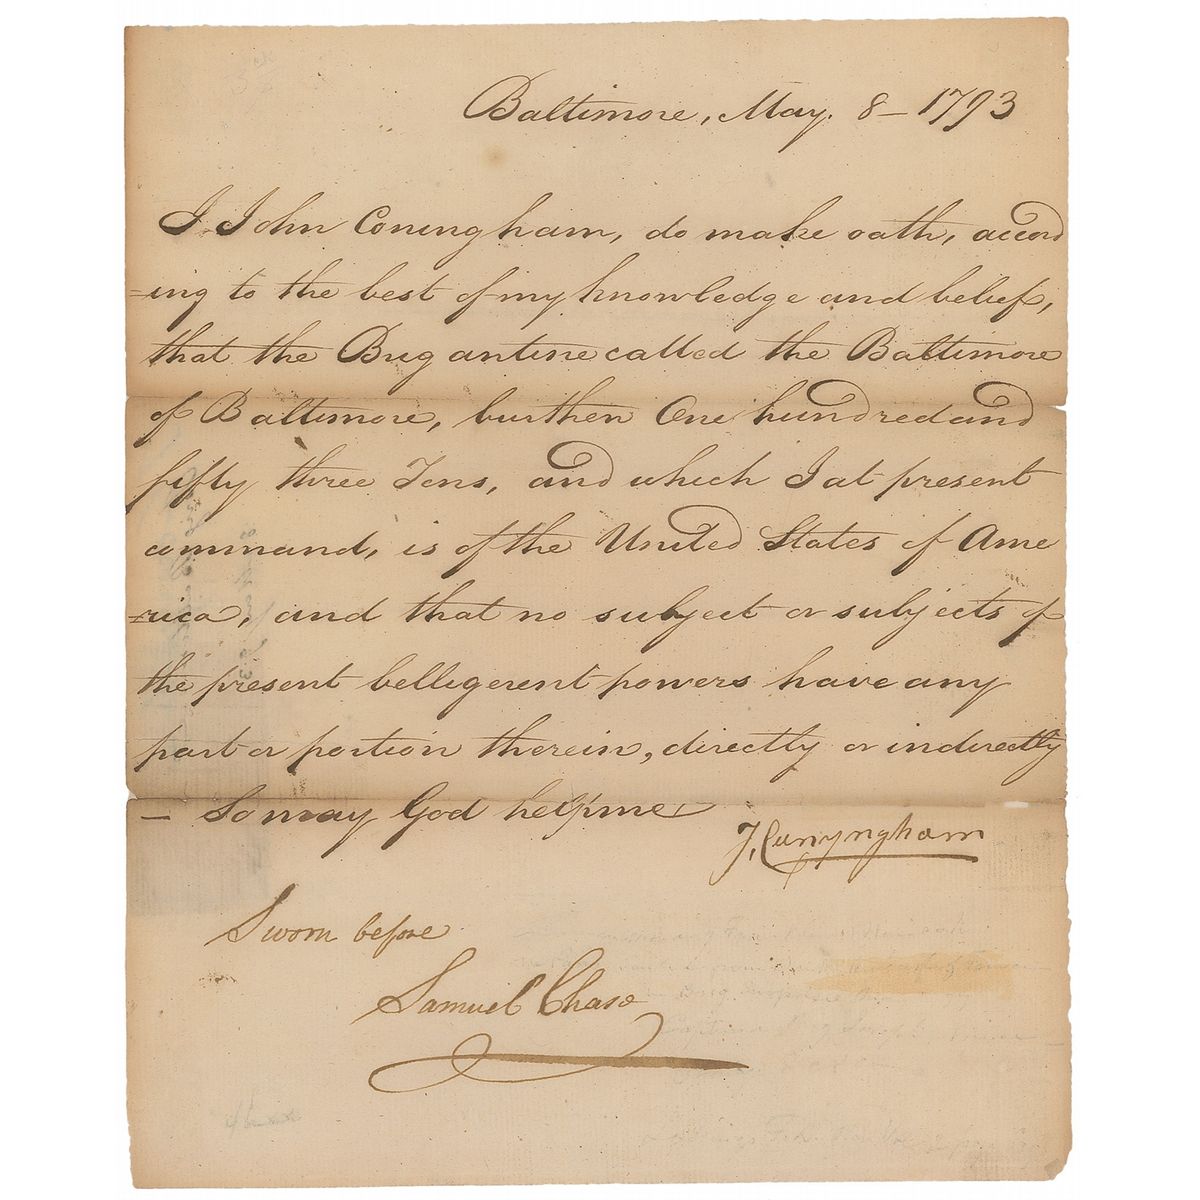 Baltimore, May. 8 – 1793
I John Coningham, do make oath, accord
=ing to the best of my knowledge and belief,
that the Brigantine called the Baltimore
of Baltimore, burthen One hundred and
fifty three Tons, and which I at present
command, is of the United States of Ame
=rica, and that no subject or subjects of
the present belligerent powers have any
part or portion therein, directly or indirectly
– So may God help me
J. Cunyngham
Sworn before
Samuel Chase